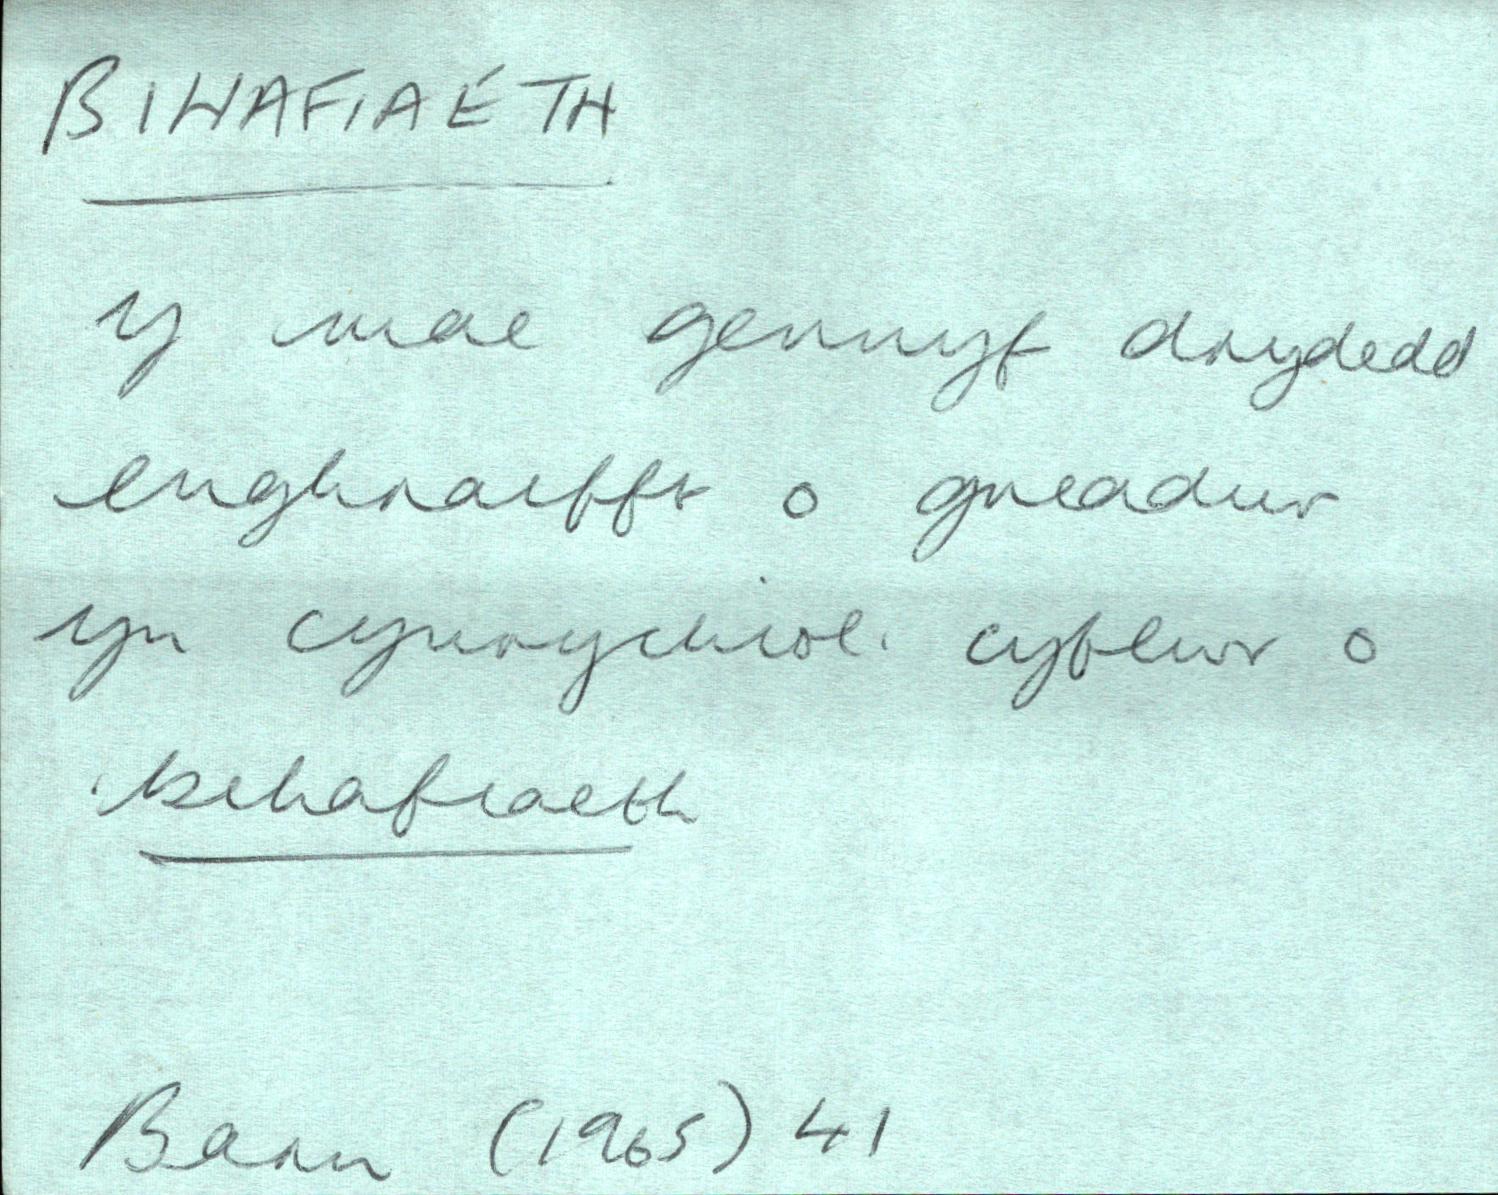 BIHAFIAETH
Y mae gennyf drydedd
enghraifft o gread​ur
yn cynrychioli cyflwr o
bihafiaeth
Barn (1965) 41